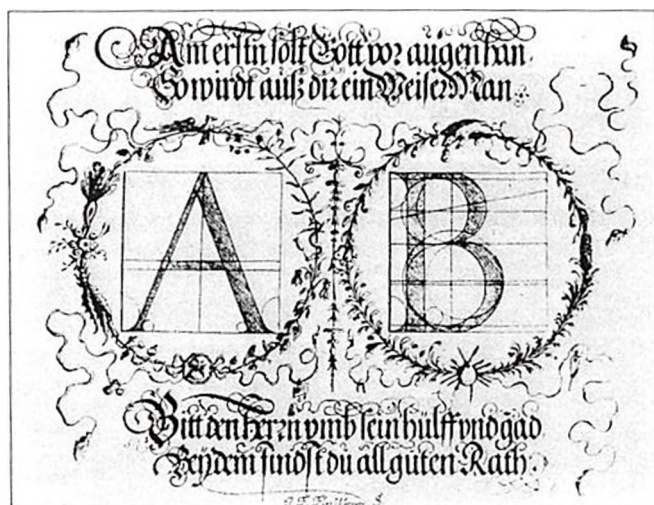 Am erstn solt Gott vor augen han.
So wirdt auß dir ein Weiser Man.
A B
Bitt den Herrn vmb sein hülff vnd gad
Bey dem findst du all guten Rath